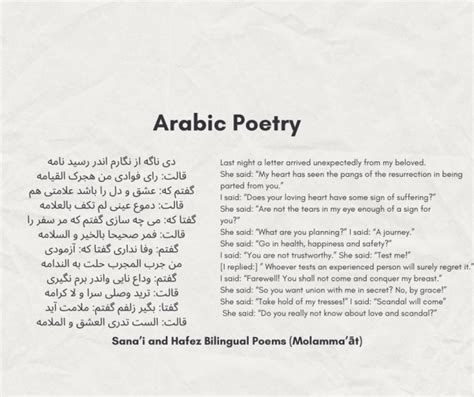 Arabic Poetry
دی ناگه از نگارم اندر رسید نامه
قالت: رای فوادی من هجرک القیامه
گفتم که: عشق و دل را باشد علامتی هم
قالت: دموع عینی لم تکف بالعلامه
گفتا که: می چه سازی گفتم که مر سفر را
قالت: فمر صحیحا بالخیر و السلامه
گفتم: وفا نداری گفتا که: آزمودی
من جرب المجرب حلت به الندامه
گفتم: وداع نایی واندر برم نگیری
قالت: ترید وصلی سرا و لا کرامه
گفتا: بگیر زلفم گفتم: ملامت آید
قالت: الست تدری العشق و الملامه
Last night a letter arrived unexpectedly from my beloved.
She said: “My heart has seen the pangs of the resurrection in being
parted from you.”
I said: “Does your loving heart have some sign of suffering?”
She said: “Are not the tears in my eye enough of a sign for
you?”
She said: “What are you planning?” I said: “A journey.”
She said: “Go in health, happiness and safety?”
I said: “You are not trustworthy.” She said: “Test me!”
[I replied:] “ Whoever tests an experienced person will surely regret it.”
I said: “Farewell! You shall not come and conquer my breast.”
She said: “So you want union with me in secret? No, by grace!”
She said: “Take hold of my tresses!” I said: “Scandal will come”
She said: “Do you really not know about love and scandal?”
Sana’i and Hafez Bilingual Poems (Molamma’āt)